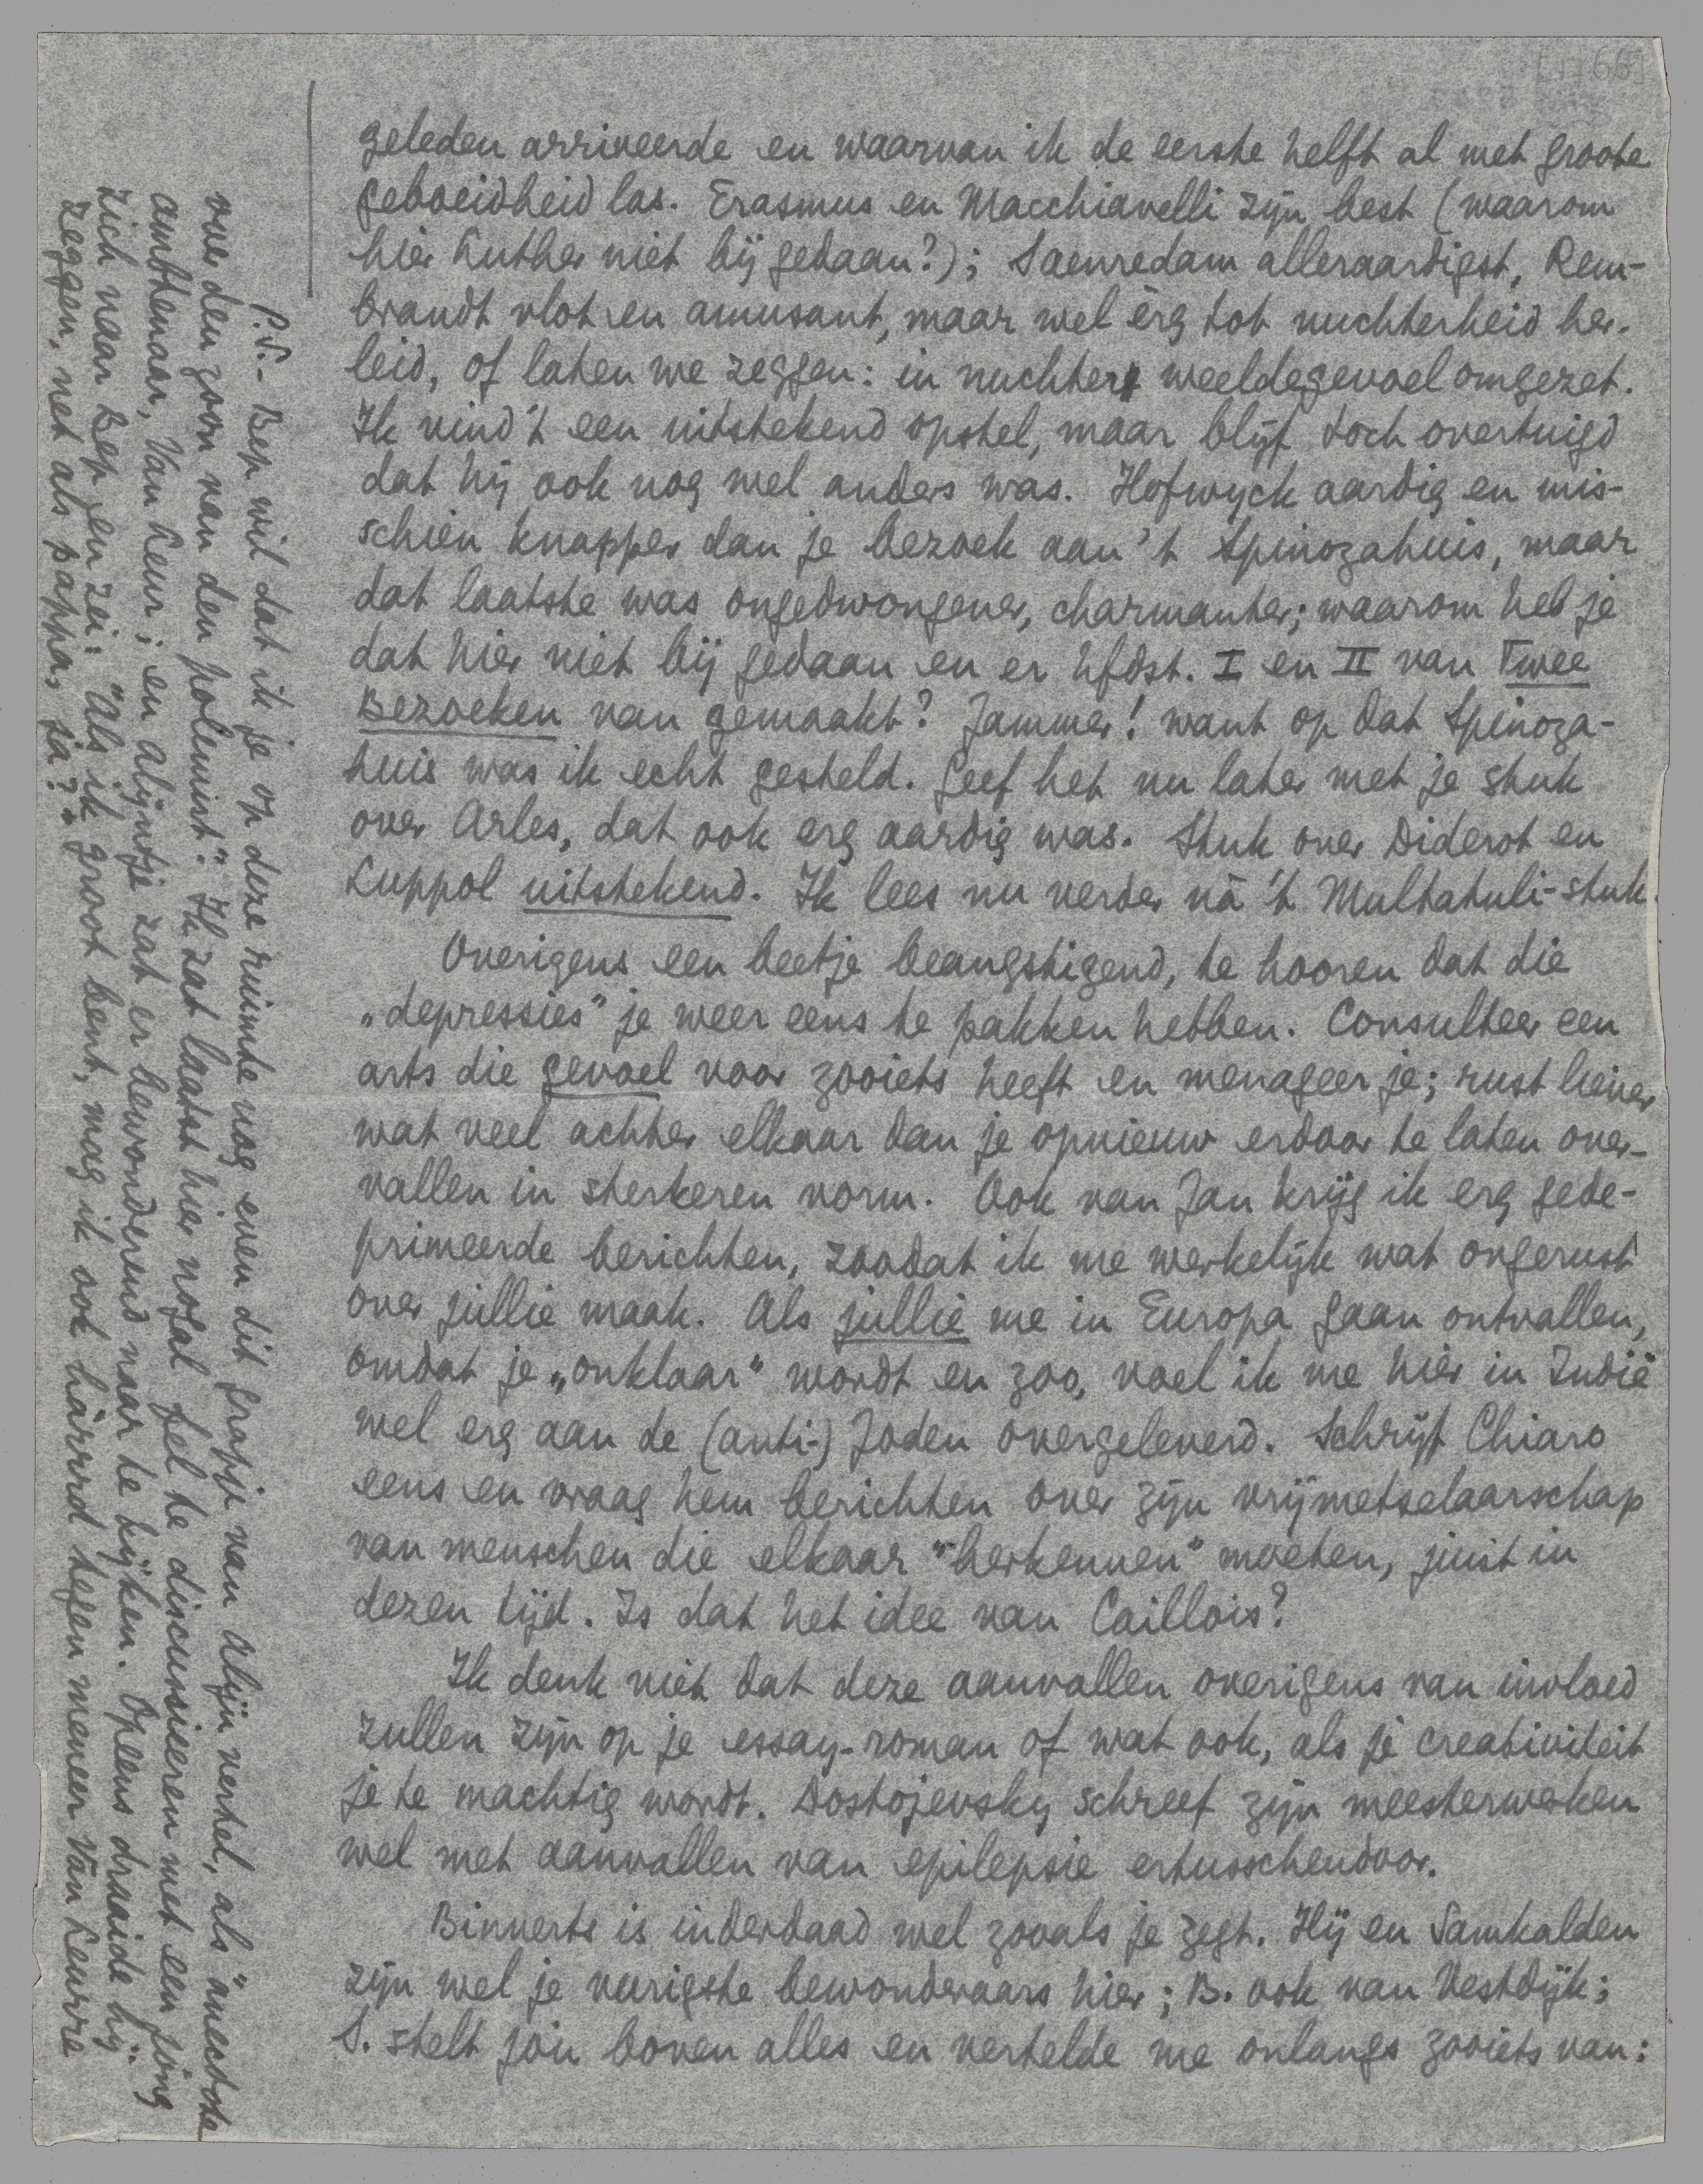 [1166]
geleden arriveerde en waarvan ik de eerste helft al met groote
geboeidheid las. Erasmus en Macchiavelli zijn best (waarom
hier Luther niet bij gedaan?); Saenredam alleraardigst, Rem-
brandt vlot en amusant, maar wel èrg tot nuchterheid her-
leid, of laten we zeggen: in nuchter weeldegevoel omgezet.
Ik vind 't een uitstekend opstel, maar blijf toch overtuigd
dat hij ook nog wel anders was. Hofwyck aardig en mis-
schien knapper dan je bezoek aan 't Spinozahuis, maar
dat laatste was ongedwongener, charmanter; waarom heb je
dat hier niet bij gedaan en er hfdst. I en II van Twee
Bezoeken van gemaakt? Jammer! want op dat Spinoza-
huis was ik echt gesteld. Geef het nu later met je stuk
over Arles, dat ook erg aardig was. Stuk over Diderot en
Luppol uitstekend. Ik lees nu verder nà 't Multatuli-stuk.
Overigens een beetje beangstigend, te hooren dat die
„depressies" je weer eens te pakken hebben. Consulteer een
arts die gevoel voor zooiets heeft en menageer je; rust liever
wat veel achter elkaar dan je opnieuw erdoor te laten over-
vallen in sterkeren vorm. Ook van Jan krijg ik erg gede-
primeerde berichten, zoodat ik me werkelijk wat ongerust
over jullie maak. Als jullie me in Europa gaan ontvallen,
omdat je „onklaar" wordt en zoo, voel ik me hier in Indië
wel erg aan de (anti-) Joden overgeleverd. Schrijf Chiaro
eens en vraag hem berichten over zijn vrijmetselaarschap
van menschen die elkaar "herkennen" moeten, juist in
dezen tijd. Is dat het idee van Caillois?
Ik denk niet dat deze aanvallen overigens van invloed
zullen zijn op je essay-roman of wat ook, als je creativiteit
je te machtig wordt. Dostojevsky schreef zijn meesterwerken
wel met aanvallen van epilepsie ertusschendoor.
Binnerts is inderdaad wel zooals je zegt. Hij en Samkalden
zijn wel je vurigste bewonderaars hier; B. ook van Vestdijk;
S. stelt jòu boven alles en vertelde me onlangs zooiets van:
P.S. - Bep wil dat ik je op deze ruimte nog even dit grapje van Alijn vertel, als "anecdote
over den zoon van den polemist". Ik zat laatst hier nogal fel te discussieeren met een jong
ambtenaar, Van Leur; en Alijntje zat er bewonderend naar te kijken. Opeens draaide hij
zich naar Bep en zei: "Als ik groot bent, mag ik ook hàrrrd tegen meneer Van Leurre
zeggen, net als pappa, ja?"